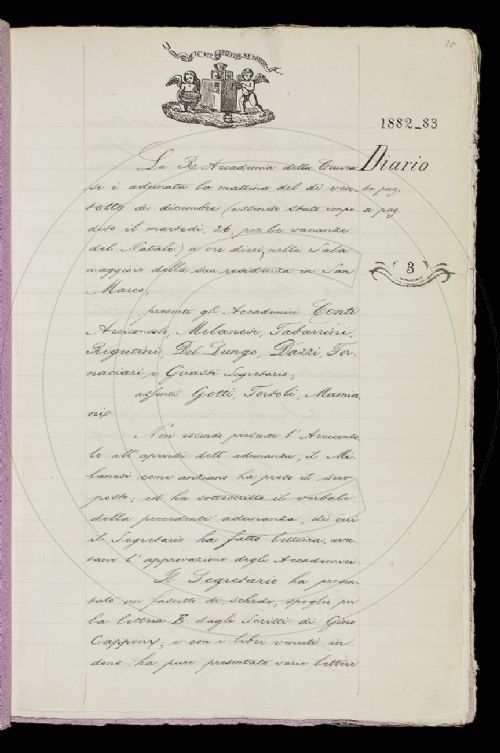 35
IL PIÙ BEL FIOR NE COGLIE
1882_83
Diario
da pag.
a pag.
3
La R. Accademia della Crusca
si è adunata la mattina del dì ven-
totto di dicembre (essendo stata impe-
dito il martedì, 26, per le vacanze
del Natale) a ore dieci, nella Sala
maggiore della sua residenza in San
Marco;
presenti gli Accademici Conti
Arciconsolo, Milanesi, Tabarrini,
Rigutini, Del Lungo, Dazzi, For-
naciari, e Guasti Segretario;
assenti Gotti, Tortoli, Mamia-
ni.
Non essendo presente l'Arciconso-
lo all'aprirsi dell'adunanza, il Mi-
lanesi come anziano ha preso il suo
posto; ed ha sottoscritto il verbale
della precedente adunanza, di cui
il Segretario ha fatto lettura, avu-
tane l'approvazione degli Accademici.
Il Segretario ha presen-
tato un fascetto di schede, spoglio per
la lettera E dagli Scritti di Gino
Capponi; e con i libri venuti in
dono ha pure presentato varie lettere